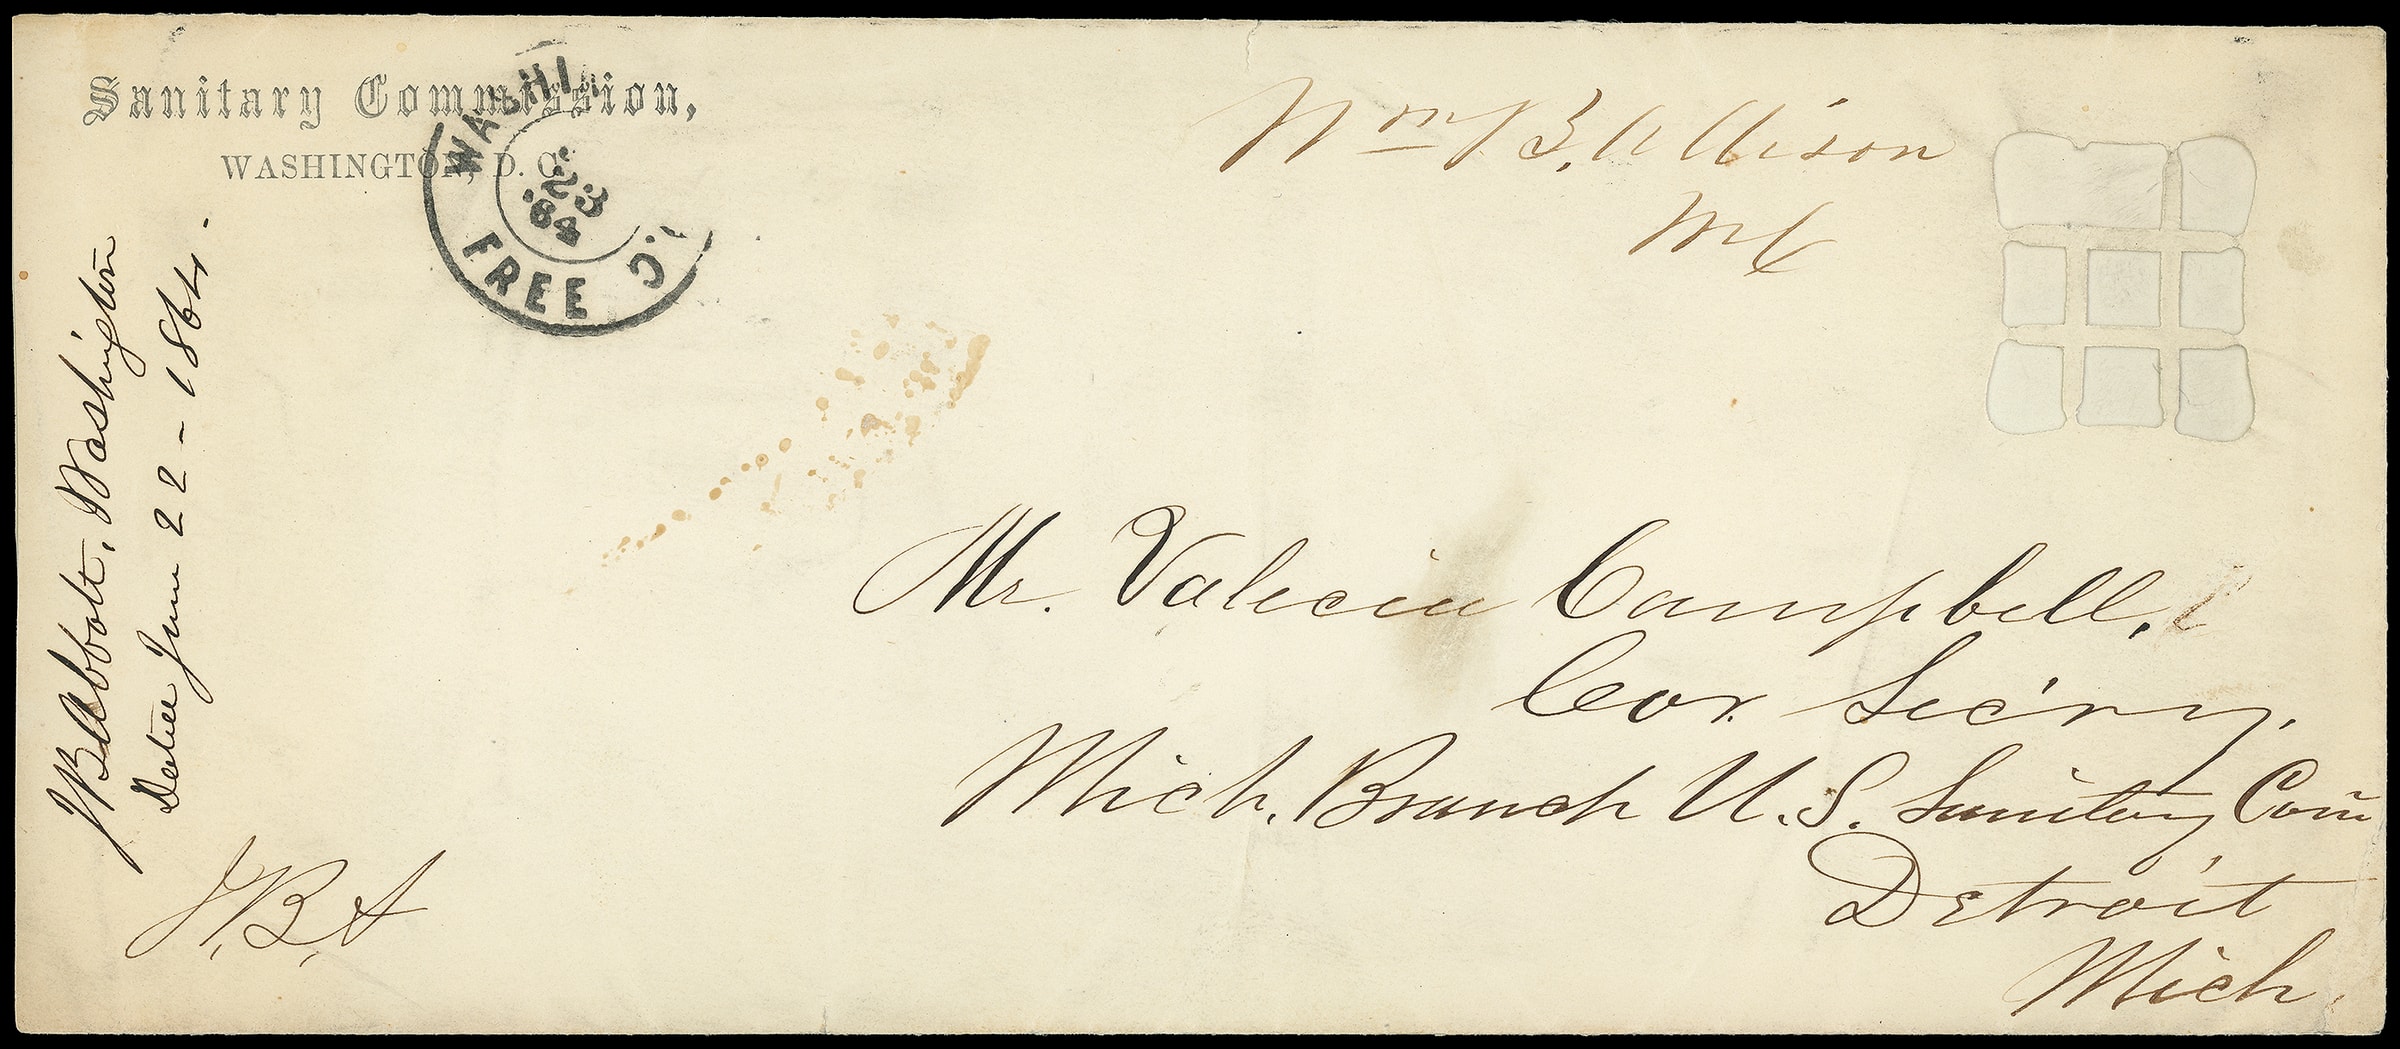 Sanitary Commission,
WASHINGTON, D. C.
WASHIN
23
'64
FREE C.
Wm B. Allison
MC
J B Abbott, Washington
Date June 22 - 1864.
J. B. A
Mr. Campbell,
Cor. Sec'ry,
Mich. Branch U. S. Sanitary Com
Detroit
Mich.